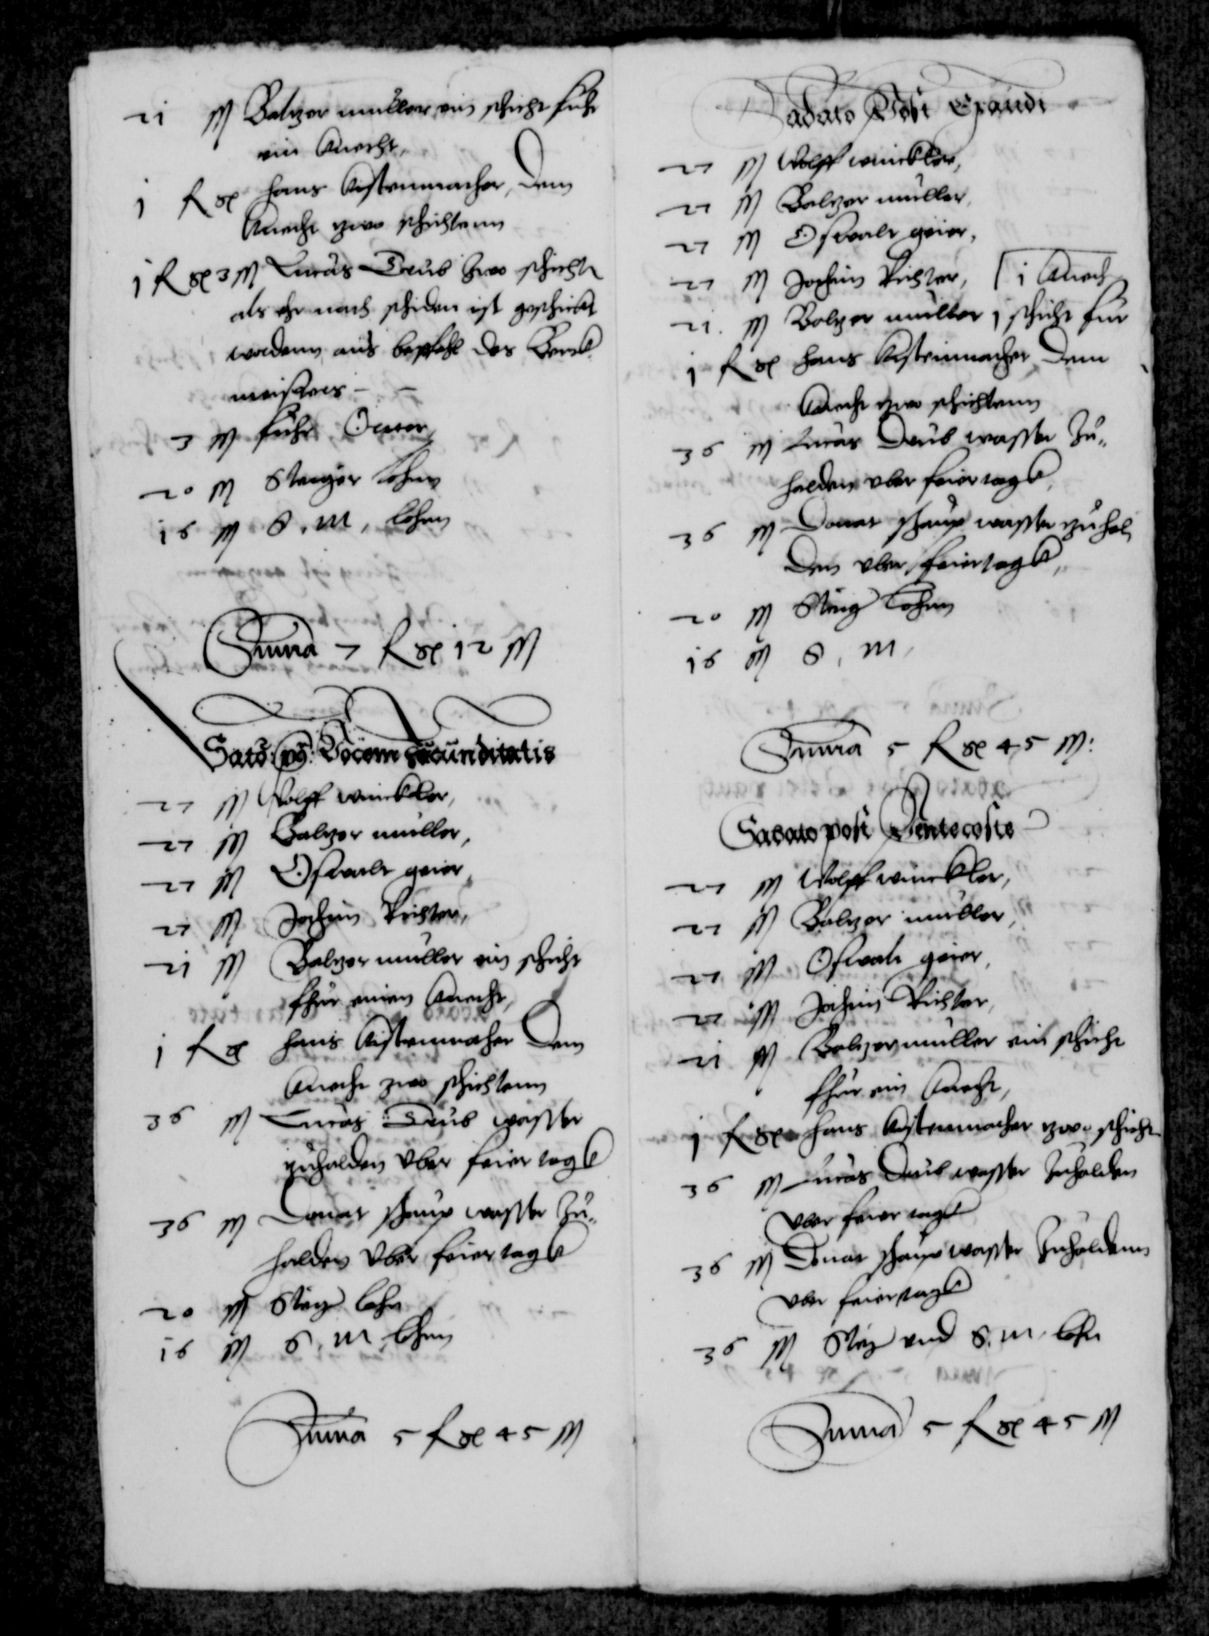 21 gr Baltzer muller ein schicht fuhr
ein knecht,
j ß gr hans kistenmacher, dem
knecht zwo schichtenn
j ß gr 3 gr Lucas Daub zwo schicht
als ehr nach schiden ist geschickt
wordenn aus bephehl des Berck
meisters
3 gr fuhr
20 gr Steiger lohnn
16 gr S. M. lohnn
Summa 7 ß gr 12 gr
Sato: po: Vocem Jucunditatis
27 gr Wolff winckler,
27 gr Baltzer muller,
27 gr Oswalt geier,
27 gr Jochim Richter,
21 gr Baltzer muller ein schicht
fhur einen knecht,
j ß gr hans kistenmacher dem
knecht zwo schichtenn
36 gr Lucas Daub wasser
zuhalden vber feiertage
36 gr Donat wasser zu-
halden vber feiertage
20 gr Steig lohn
16 gr S. M. lohnn
Summa 5 ß gr 45 gr
Sabato Post Exaudi
27 gr Wolff winckler,
27 gr Baltzer muller,
27 gr Oswalt geier,
27 gr Jochim Richter, 1 knech
21 gr Baltzer muller 1 schicht fur
j ß gr hans kistenmacher dem
knecht zwo schichtenn
36 gr Lucas Daub wasser zu-
halden vber feiertage,
36 gr Donat wasser zuhal
den vber feiertage,
20 gr Steig lohnn
16 gr S. M.
Summa 5 ß gr 45 gr:
Sabato post Pentecoste
27 gr Wolff winckler,
27 gr Baltzer muller,
27 gr Oswalt geier,
27 gr Jochim Richter,
21 gr Baltzer muller ein schicht
fhur ein knecht,
j ß gr hans kistenmacher zwo schicht
36 gr Lucas Daub wasser zuhalden
vber feiertage
36 gr Donat wasser zuhaldenn
vber feiertage
36 gr Steig vnd S. M. lohn
Summa 5 ß gr 45 gr